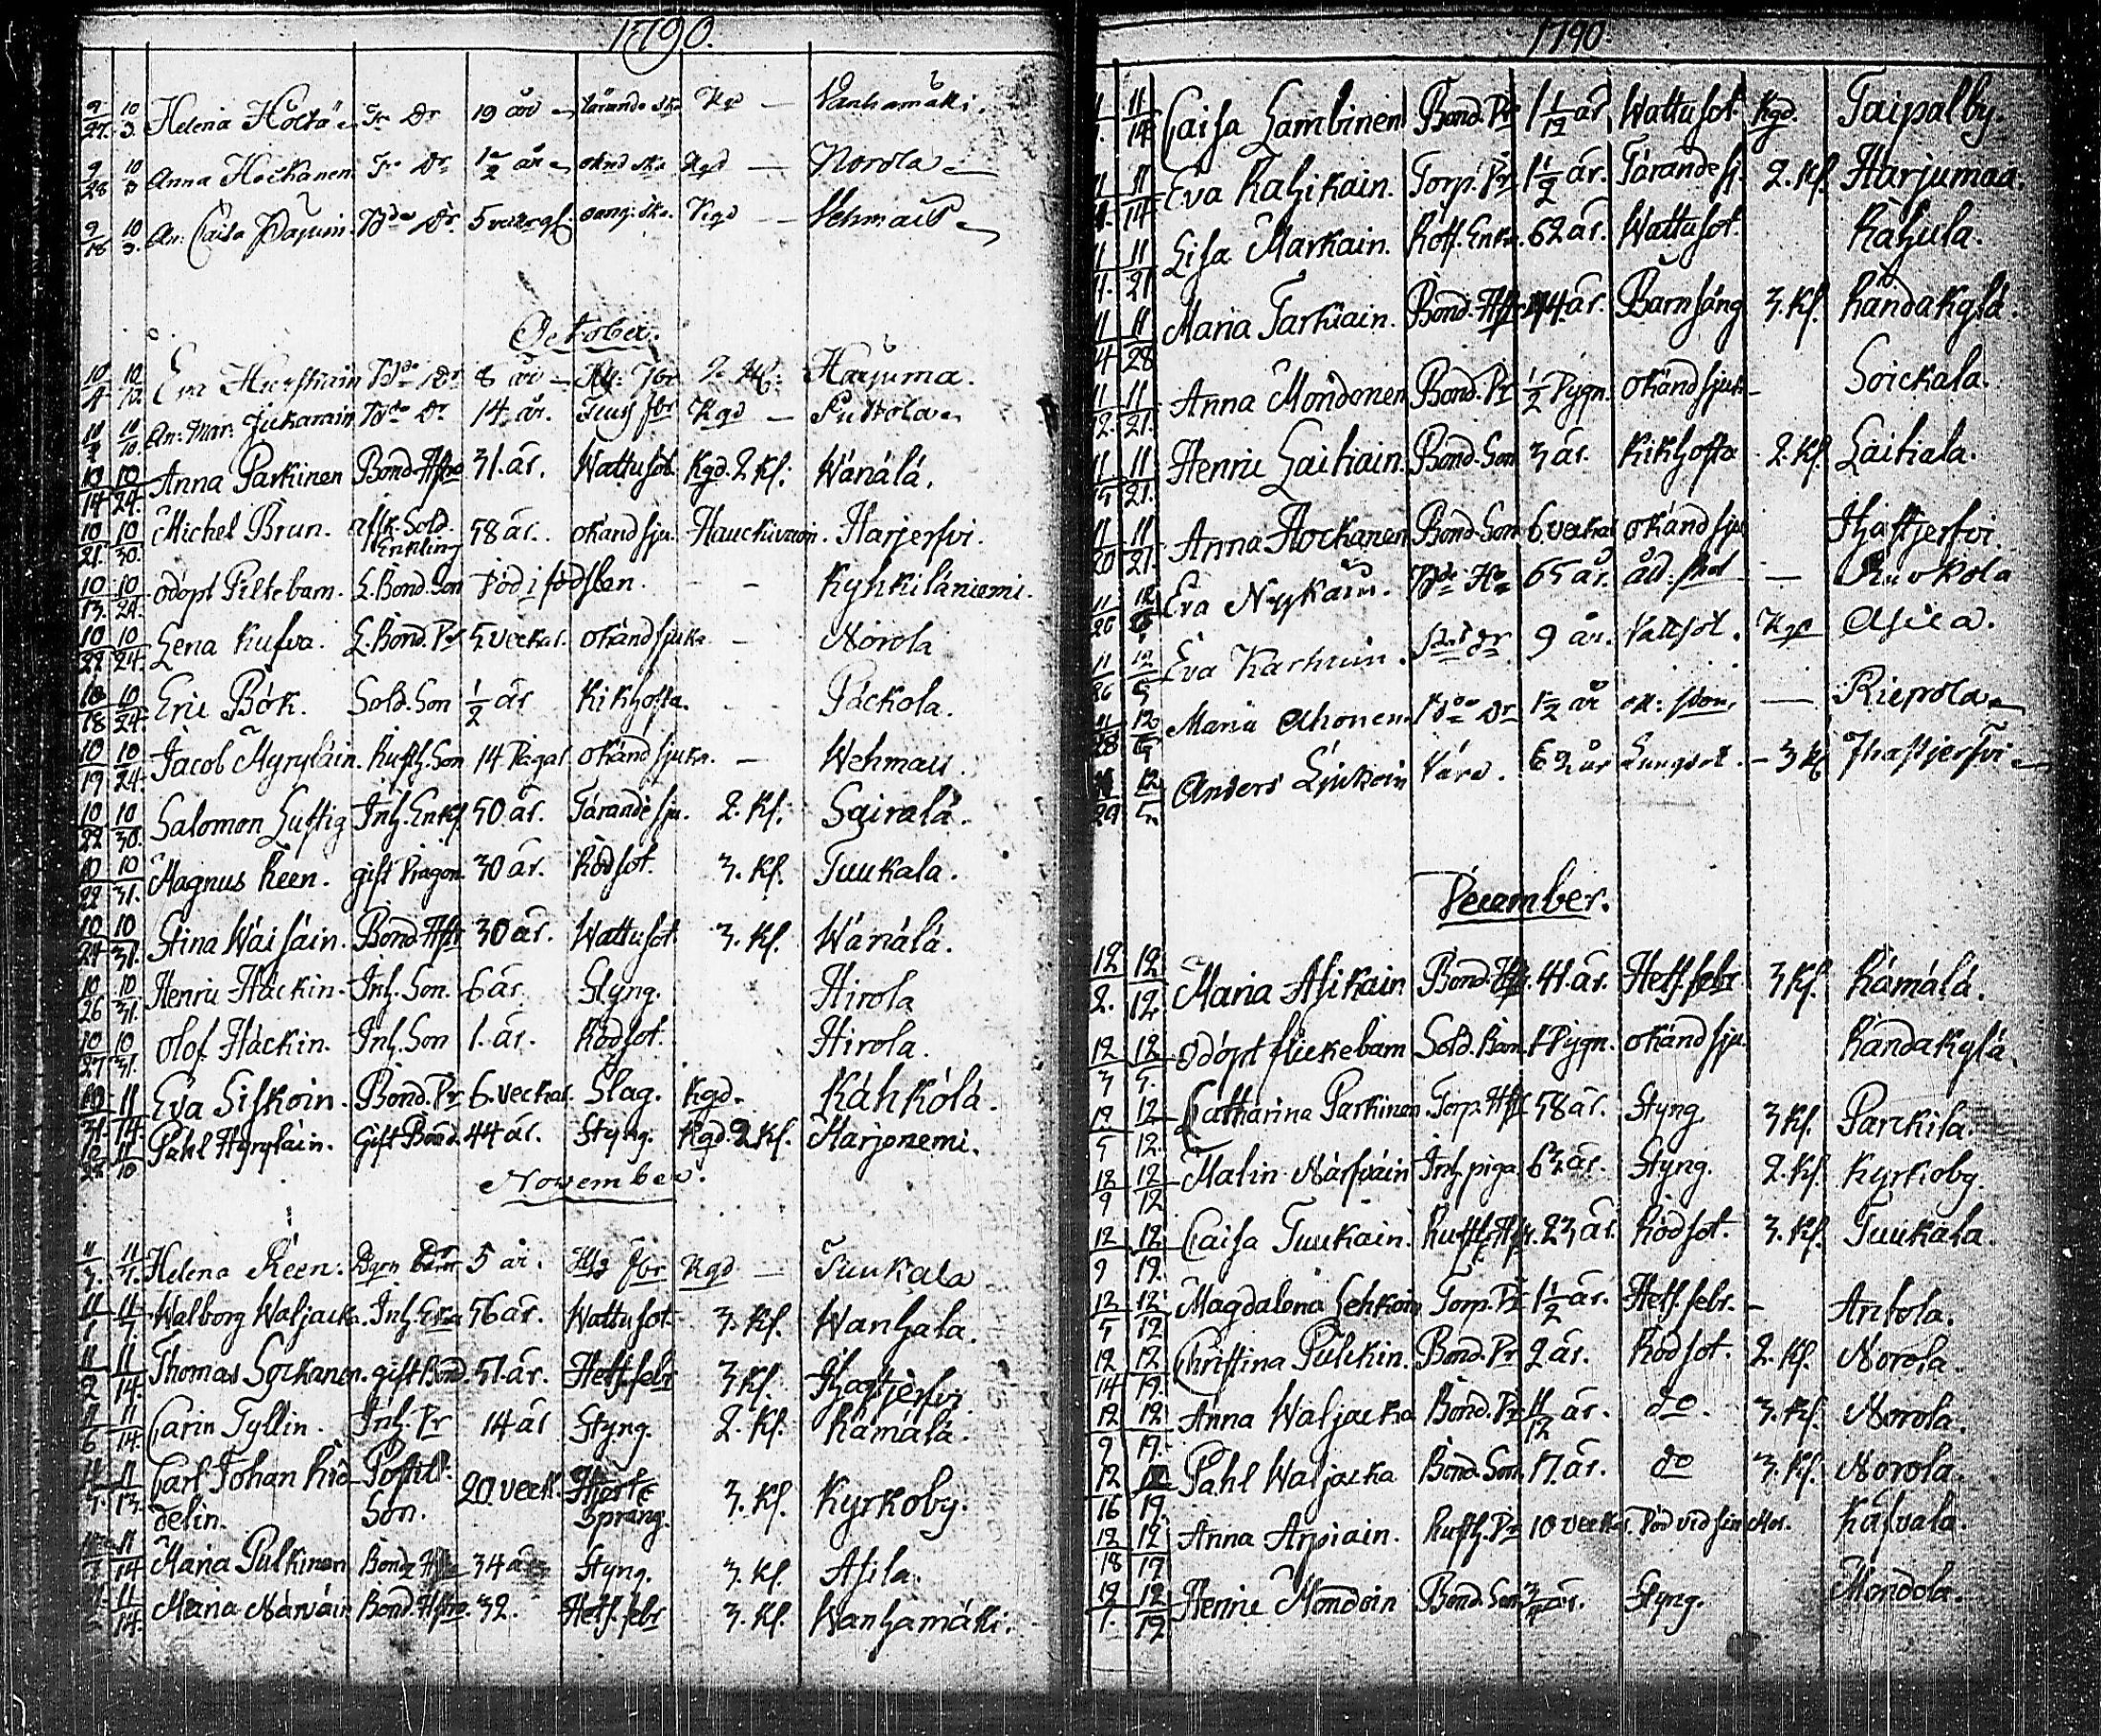 1790.
9/27. 10/3. Helena Höltö Fr Dr 19 år tärande sku Kgd — Vanhamäki.
9/28 10/3 Anna Hockanen Fr Dr 1/2 år oknd sku Kgd — Norola
9/16 10/3. An: Caisa Papuin Bde Dr. 5 veckor gl. oang: sku. Kgd — Vehmais
October.
10/4 10/12. Eva Hurskain Bde Dr 8 år — Rtt: fbr 2 Kl: Harjuma.
An: Mar: Juckarain Bde Dr 14. år. fbr Kgd — Puttola
10/14 10/24. Anna Parkinen Bond. Hstro 31. år. Wattusot. Kgd. 2 Kl: Wänälä.
10/21. 10/30. Michel Brun. afsk. Sold. Enkling 58 år. okänd sju. Hauckivuori. Harjerfvi.
10/13. 10/24. odöpt Piltebarn. L. Bond. Son Död i födslen. - - Kyhkiläniemi.
10/22 10/24. Lena Kufva. L. Bond. Dr 5. veckor. okänd sjuka — Norola
10/18 10/24. Eric Bök. Sold. Son 1/2 år Kikhosta. Päckola.
10/19 10/24. Jacob Myryläin. Rusth. Son 14 Dagar okänd sjukn. — Wehmais.
10/22 10/30. Salomon Lustig Inh. Enkl 50. år. Tärande sju. 2. Kl. Sairala.
10/22 10/31. Magnus Keen. gift Dragon 30 år. Rödsot. 3. Kl. Tuukala.
10/27 10/31. Stina Wäisäin. Bond. Hstr 30 år. Wattusot 3. Kl. Wänälä.
10/26 10/31. Henric Häckin. Inh. Son. 6 år. Styng. Hirola
10/27 10/31. Olof Häckin. Inh. Son 1. år. Rödsot. Hirola.
10/31. 11/14. Eva Siskoin. Bond. Dr 6. veckor. Slag. Kgd. Kähkölä.
Påhl Hyryläin. Gift Bond. 44 år. Styng. Kgd. 2 Kl. Harjoniemi.
November.
11/3. 11/7. Helena Keen. 5 år. fbr Kgd — Tuukala
11/1 11/7. Walborg Waljacka. Inh. Enka 56 år. Wattusot. 3. Kl. Wanhala.
11/2 11/14. Thomas Sockanen. gift Bond. 51. år. Hets. febr 3 Kl. Ihastjerfvi
11/6 11/14. Carin Tyllin. Inh. Dr 14 år Styng. 2. Kl. Kämälä.
11/3. 11/13. Carl Johan Rid- Postil. 20. veck. Hierte 3. Kl. Kyrkoby.
delin. Son. Sprang.
11/14 Maria Pulkinen Bond. 34 år Styng. 3. Kl. Asila.
11/14. Maria Närväin Bond. Hstro. 32. Hets. febr 3. Kl. Wanhamäki.
1790
11/14 Caisa Lambinen Bond. Dr 1 1/12 år Wattusot Kgd. Taipalby.
11/14. Eva Rahikain. Torp. Dr 1 1/2 år. Tärande sj. 2. Kl. Harjumaa.
11/21 Lisa Markain. Rott. Enka. 62 år. Wattusot. Rahula.
11/4 11/28 Maria Tarkiain. Bond. Hstr 44 år. Barnsäng 3. Kl. Randakylä.
11/2. 11/21. Anna Mondonen Bond. Dr 1/2 Dygn. okänd sjuk- Soickala.
11/15 11/21. Henric Laitiain. Bond. Son 3 år. Kikhosta 2. Kl. Laitiala.
11/20 11/21. Anna Hockanen Bond. Son 6. veckor okänd sju Ihastjerfvi.
11/26 12/5 Eva Nyykäin. Bde Ha 65 år. åld: — Ruokola
11/26 12/5 Eva Karhuin. Dr 9 år. Vattsot. Kgd Asila.
11/28 12/5 Maria Ahonen. Bde Dr 1 1/2 år — Riepola
11/29 12/5 Anders Liukoin 62 år Lungsot. — 3 Kl Ihastjerfvi
December.
12/2. 12/12. Maria Asikain Bond. Hstr. 41. år. Hets. febr 3 Kl. Kämälä.
12/3 12/5. Odöpt flickebarn Sold. Barn. 1 Dygn. okänd sju. Randakylä.
12/5 12/12. Catharina Parkinen Torp. Hstr 58 år. Styng 3 Kl. Parckila.
12/9 12/12 Malin Närfväin Inh. piga. 63 år. Styng. 2. Kl. Kyrkoby.
12/9 12/19. Caisa Tuukain. Rusth. Hstr. 23 år. Rödsot. 3. Kl. Tuukala.
12/5 12/12 Magdalena Lehkoin Torp. Dr 1 1/2 år. Hets. febr. — Antola.
12/14 12/19. Christina Pulckin. Bond. Dr 2 år. Rödsot. 2. Kl. Norola.
12/9 12/19. Anna Waljacka Bond. Dr 11/12 år. do. 3. Kl. Norola.
12/16 12/19. Påhl Waljacka Bond. Son. 17. år. do 3. Kl. Norola.
12/18 12/19 Anna Arpiain. Rusth. Dr 10 veckor. Död vid sin Mor. Kåfvala.
12/1. 12/12 Henric Mondoin Bond. Son 3/4 år. Styng. Mondola.